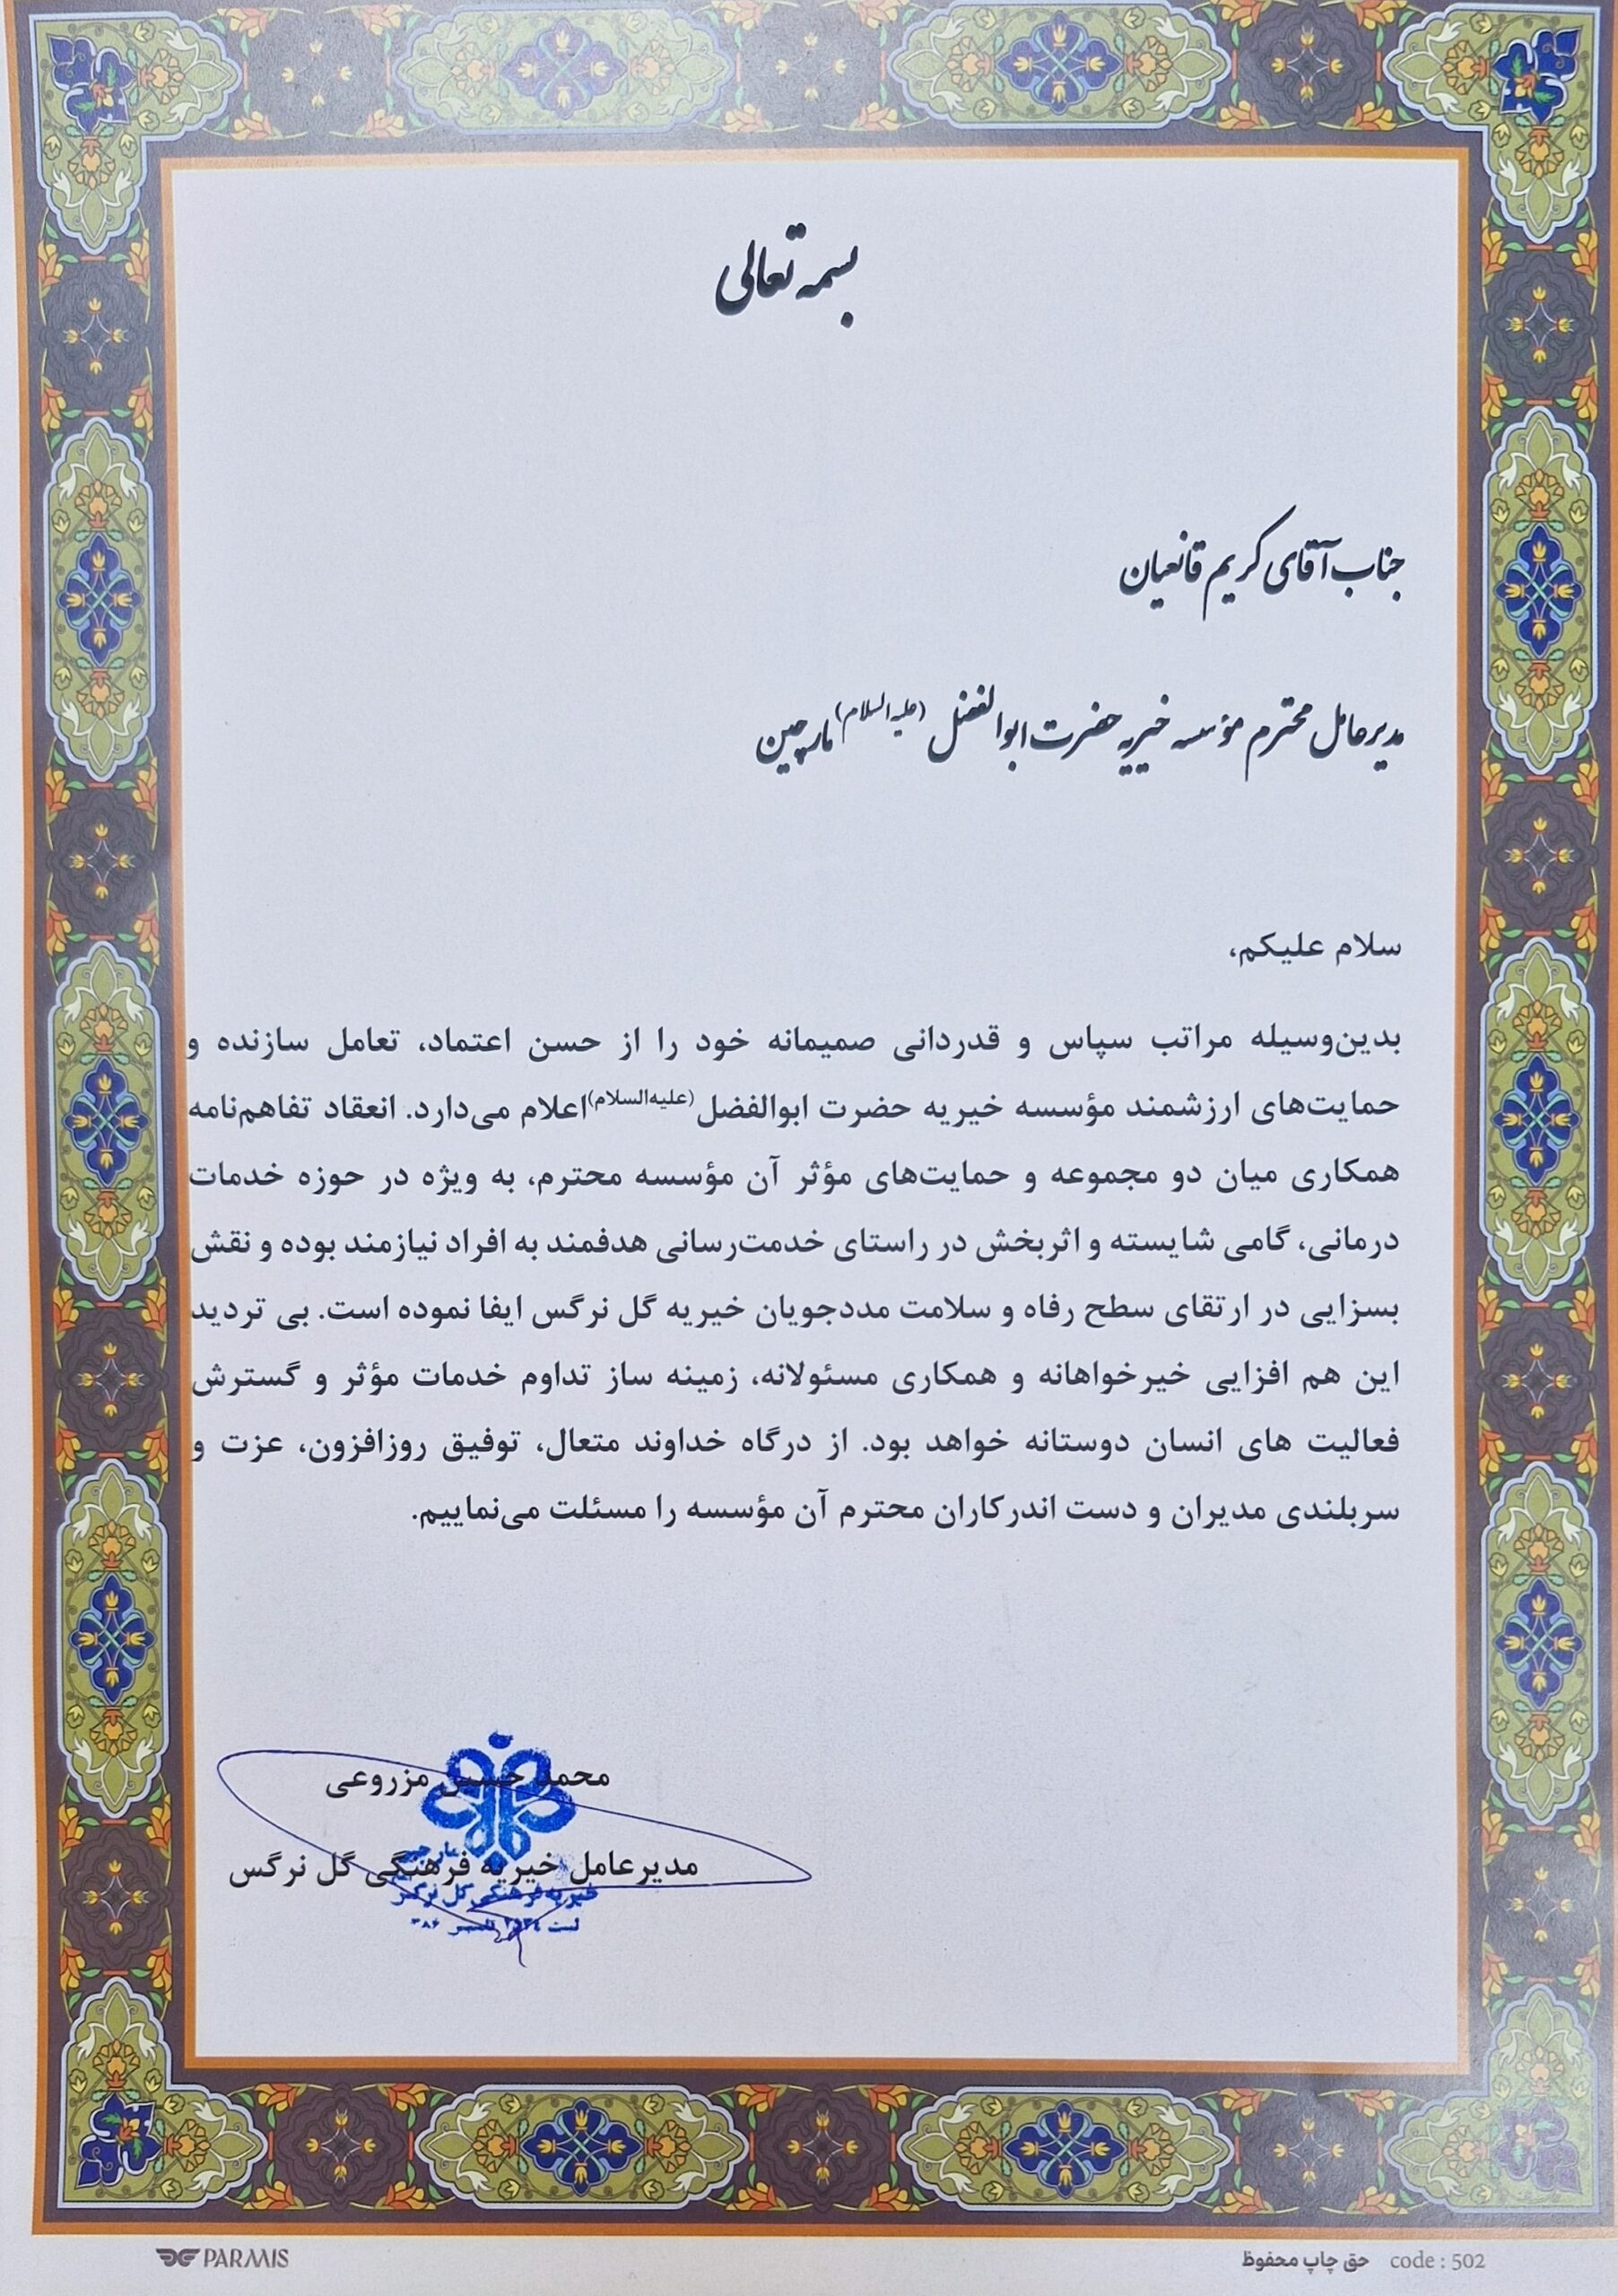 بسمه تعالی
جناب آقای کریم قانعیان
مدیرعامل محترم مؤسسه خیریه حضرت ابوالفضل (علیه‌السلام) مارچین
سلام علیکم،
بدین‌وسیله مراتب سپاس و قدردانی صمیمانه خود را از حسن اعتماد، تعامل سازنده و
حمایت‌های ارزشمند مؤسسه خیریه حضرت ابوالفضل(علیه‌السلام)اعلام می‌دارد. انعقاد تفاهم‌نامه
همکاری میان دو مجموعه و حمایت‌های مؤثر آن مؤسسه محترم، به ویژه در حوزه خدمات
درمانی، گامی شایسته و اثربخش در راستای خدمت‌رسانی هدفمند به افراد نیازمند بوده و نقش
بسزایی در ارتقای سطح رفاه و سلامت مددجویان خیریه گل نرگس ایفا نموده است. بی تردید
این هم افزایی خیرخواهانه و همکاری مسئولانه، زمینه ساز تداوم خدمات مؤثر و گسترش
فعالیت های انسان دوستانه خواهد بود. از درگاه خداوند متعال، توفیق روزافزون، عزت و
سربلندی مدیران و دست اندرکاران محترم آن مؤسسه را مسئلت می‌نماییم.
محمد حسین مزروعی
مدیرعامل خیریه فرهنگی گل نرگس
خیریه فرهنگی گل نرگس
PARMIS
حق چاپ محفوظ code : 502